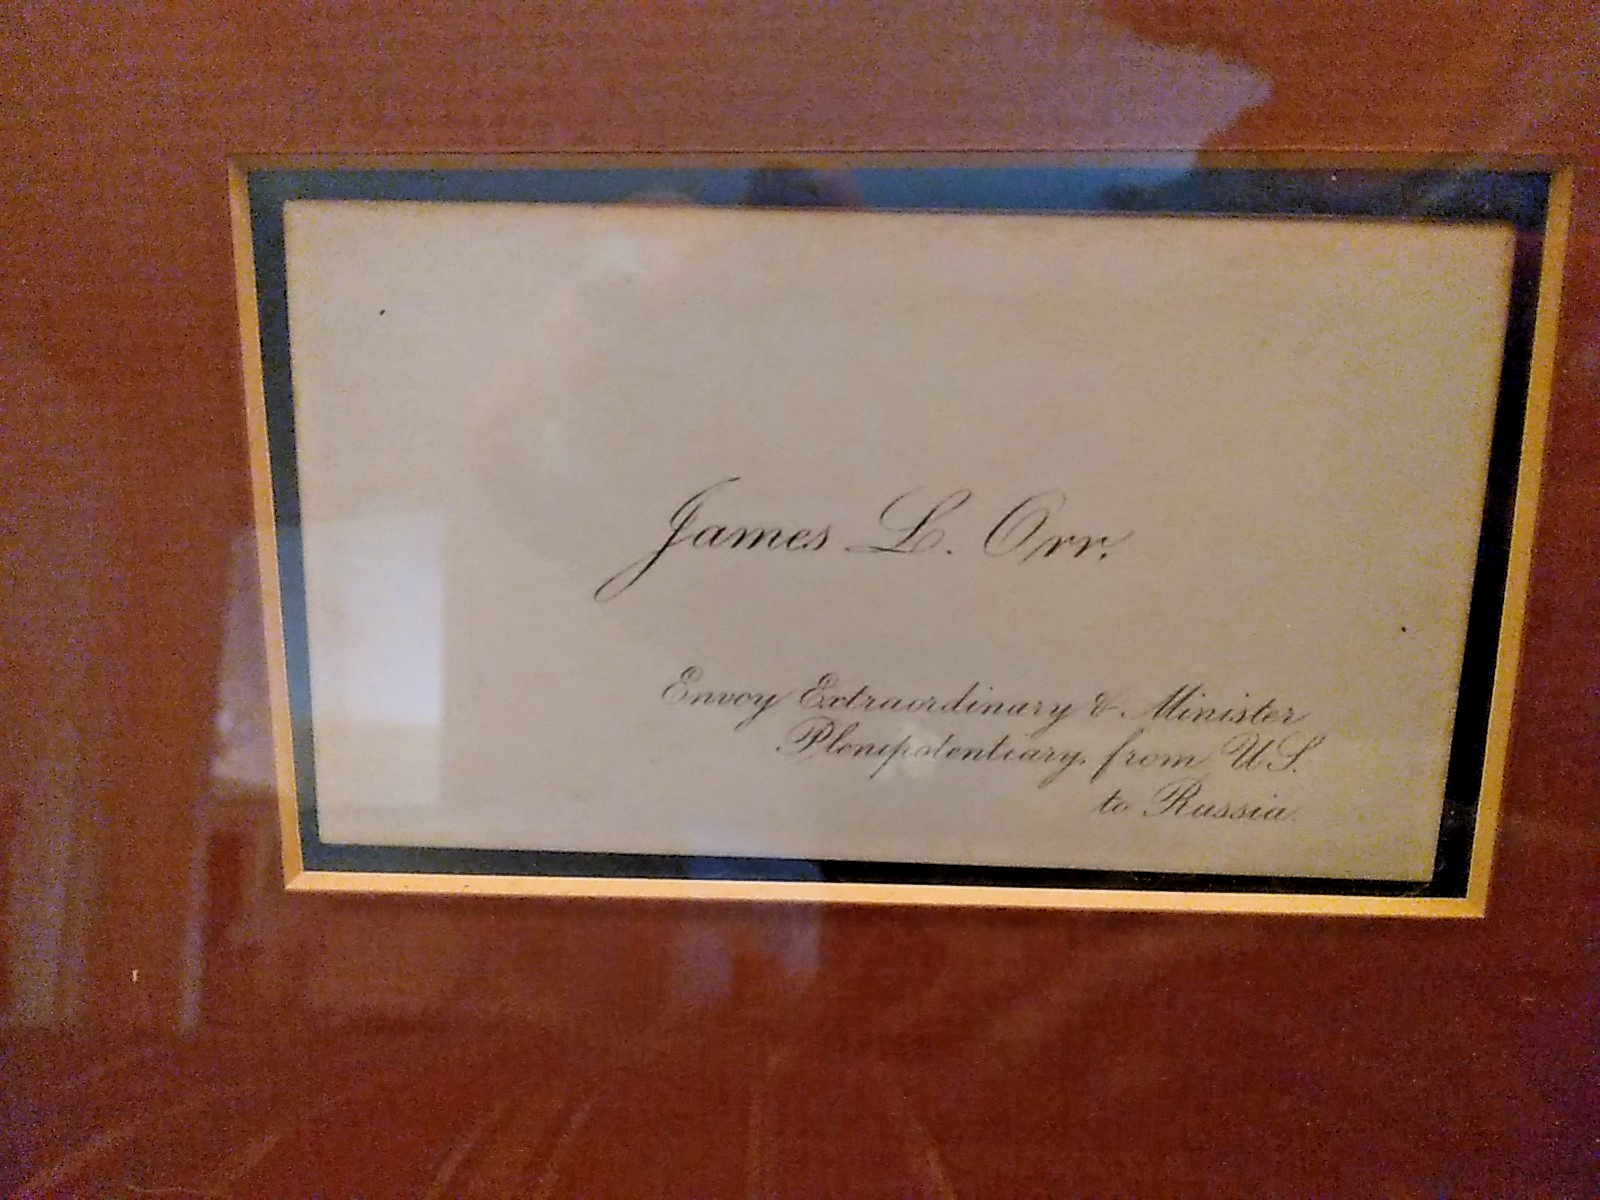 James L. Orr.
Envoy Extraordinary & Minister
Plenipotentiary, from U.S.
to Russia.